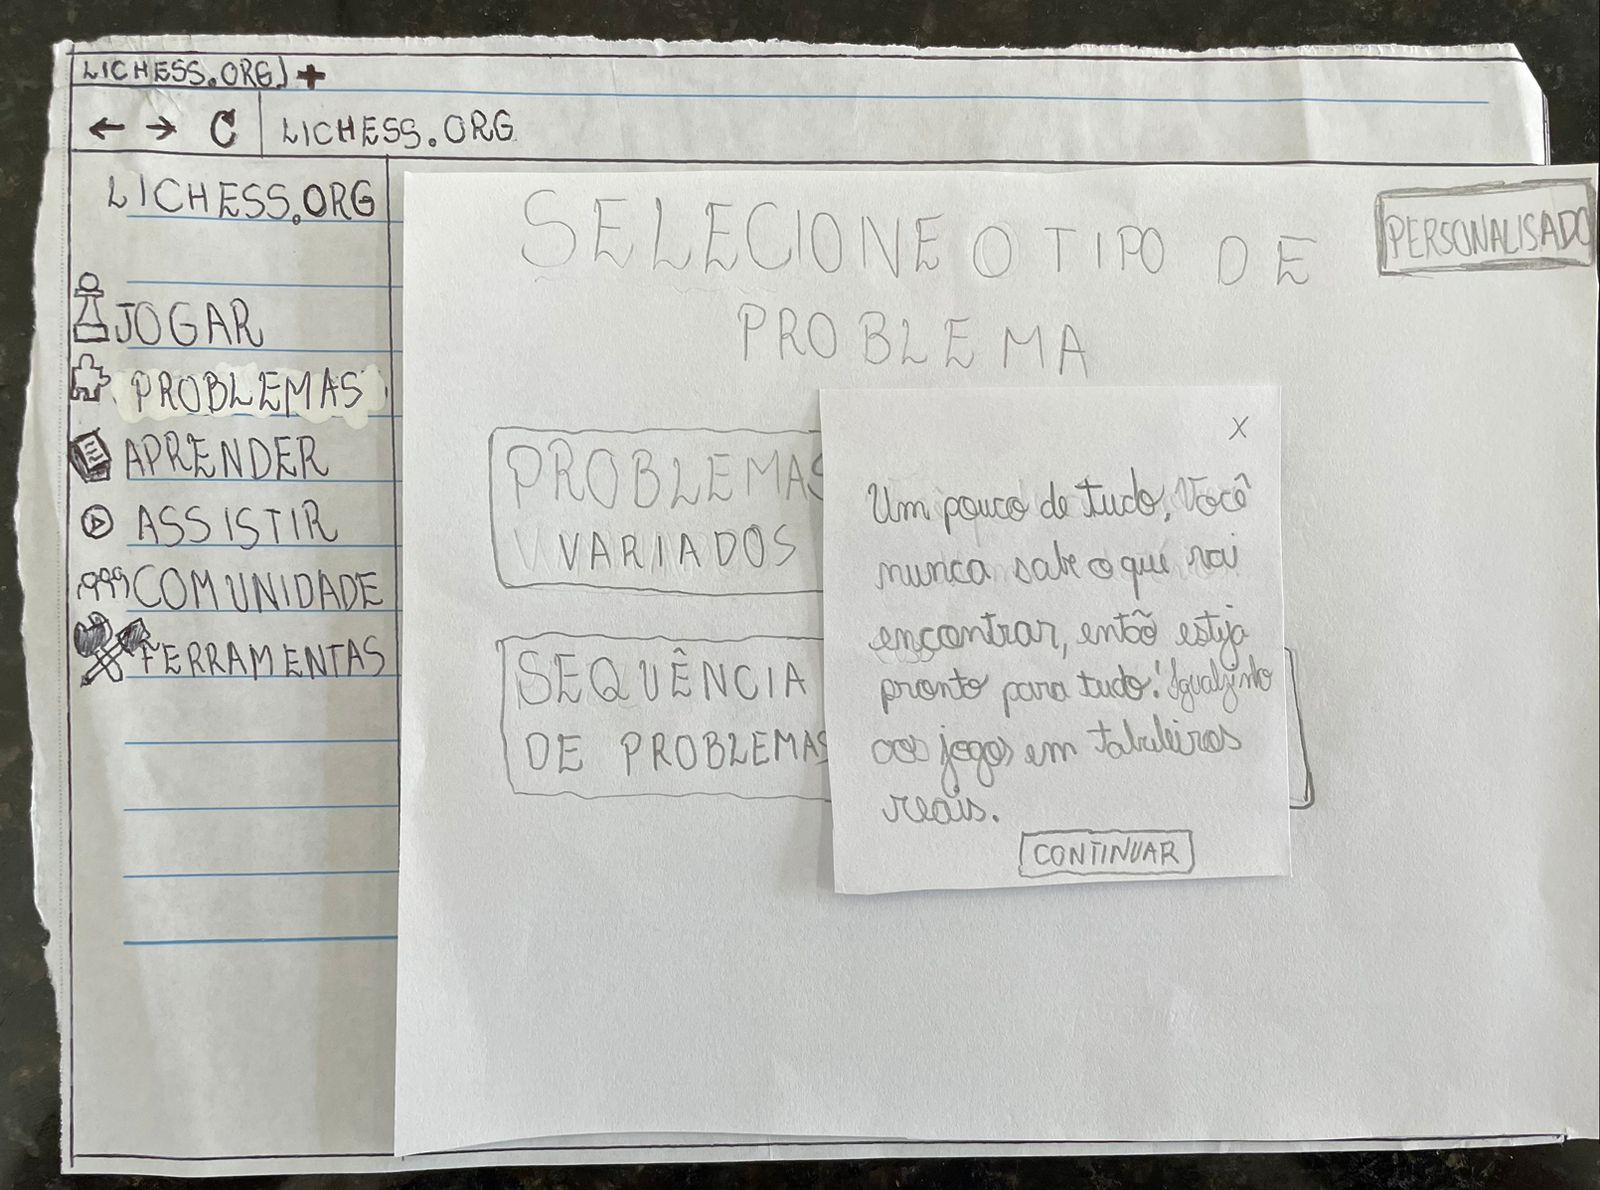 LICHESS.ORG +
← → C LICHESS.ORG
LICHESS.ORG
JOGAR
PROBLEMAS
APRENDER
ASSISTIR
COMUNIDADE
FERRAMENTAS
SELECIONE O TIPO DE
PROBLEMA
PERSONALISADO
PROBLEMAS
VARIADOS
SEQUÊNCIA
DE PROBLEMAS
X
Um pouco de tudo. Você
nunca sabe o que vai
encontrar, entõ esteja
pronto para tudo! Igualzinho
aos jogos em tabuleiros
reais.
CONTINUAR